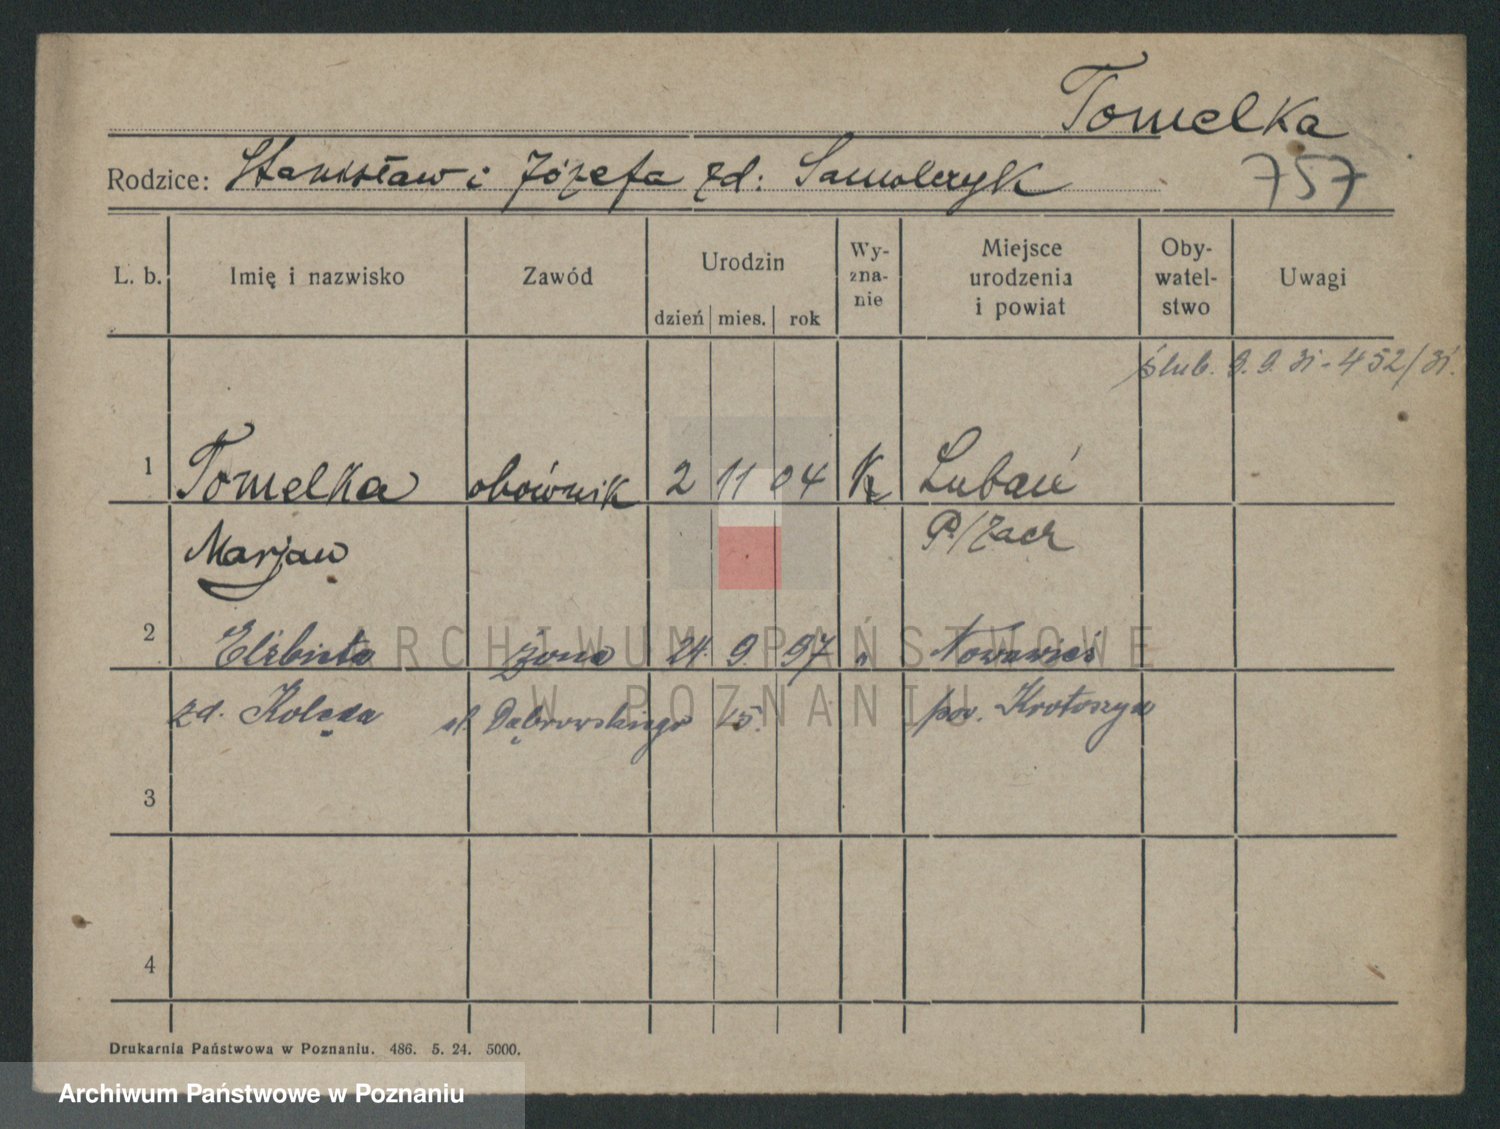 Tomelka
Rodzice: Stanisław i Józefa zd: Samolczyk
757
L. b. Imię i nazwisko Zawód Urodzin Wy-zna-nie Miejsce urodzenia i powiat Oby-watel-stwo Uwagi
dzień mies. rok
ślub. 9.9.31-452/31.
1 Tomelka obównik 2 11 04 K Lubań
Marjan P/Zach
2 Elżbieta żona 24. 9. 97 " Nowawieś
zd. Kolęda ul. Dąbrowskiego 15. pow. Krotoszyn
3
4
Drukarnia Państwowa w Poznaniu. 486. 5. 24. 5000.
ARCHIWUM PAŃSTWOWE
W POZNANIU
Archiwum Państwowe w Poznaniu